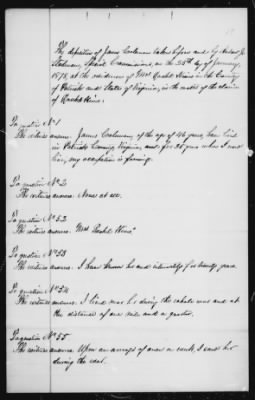 The deposition of James Coleman taken before and by
Special Commissioner, on the 25th day of January,
1878, at the residence of Mrs Rachel in the County
of Patrick and State of Virginia, in the matter of the claim
of Rachel
To question No 1
The witness answers James Coleman, of the age of 46 years, have lived
in Patrick County Virginia, and for 25 years where I now
live, my occupation is farming.
To question No 2
The witness answers None at all.
To question No 52
The witness answers Mrs Rachel
To question No 53
The witness answers. I have known her and intimately for twenty years.
To question No 54
The witness answers. I lived near her during the whole war and at
the distance of one mile and a quarter.
To question No 55
The witness answers Upon an average of once a week, I saw her
during the war.